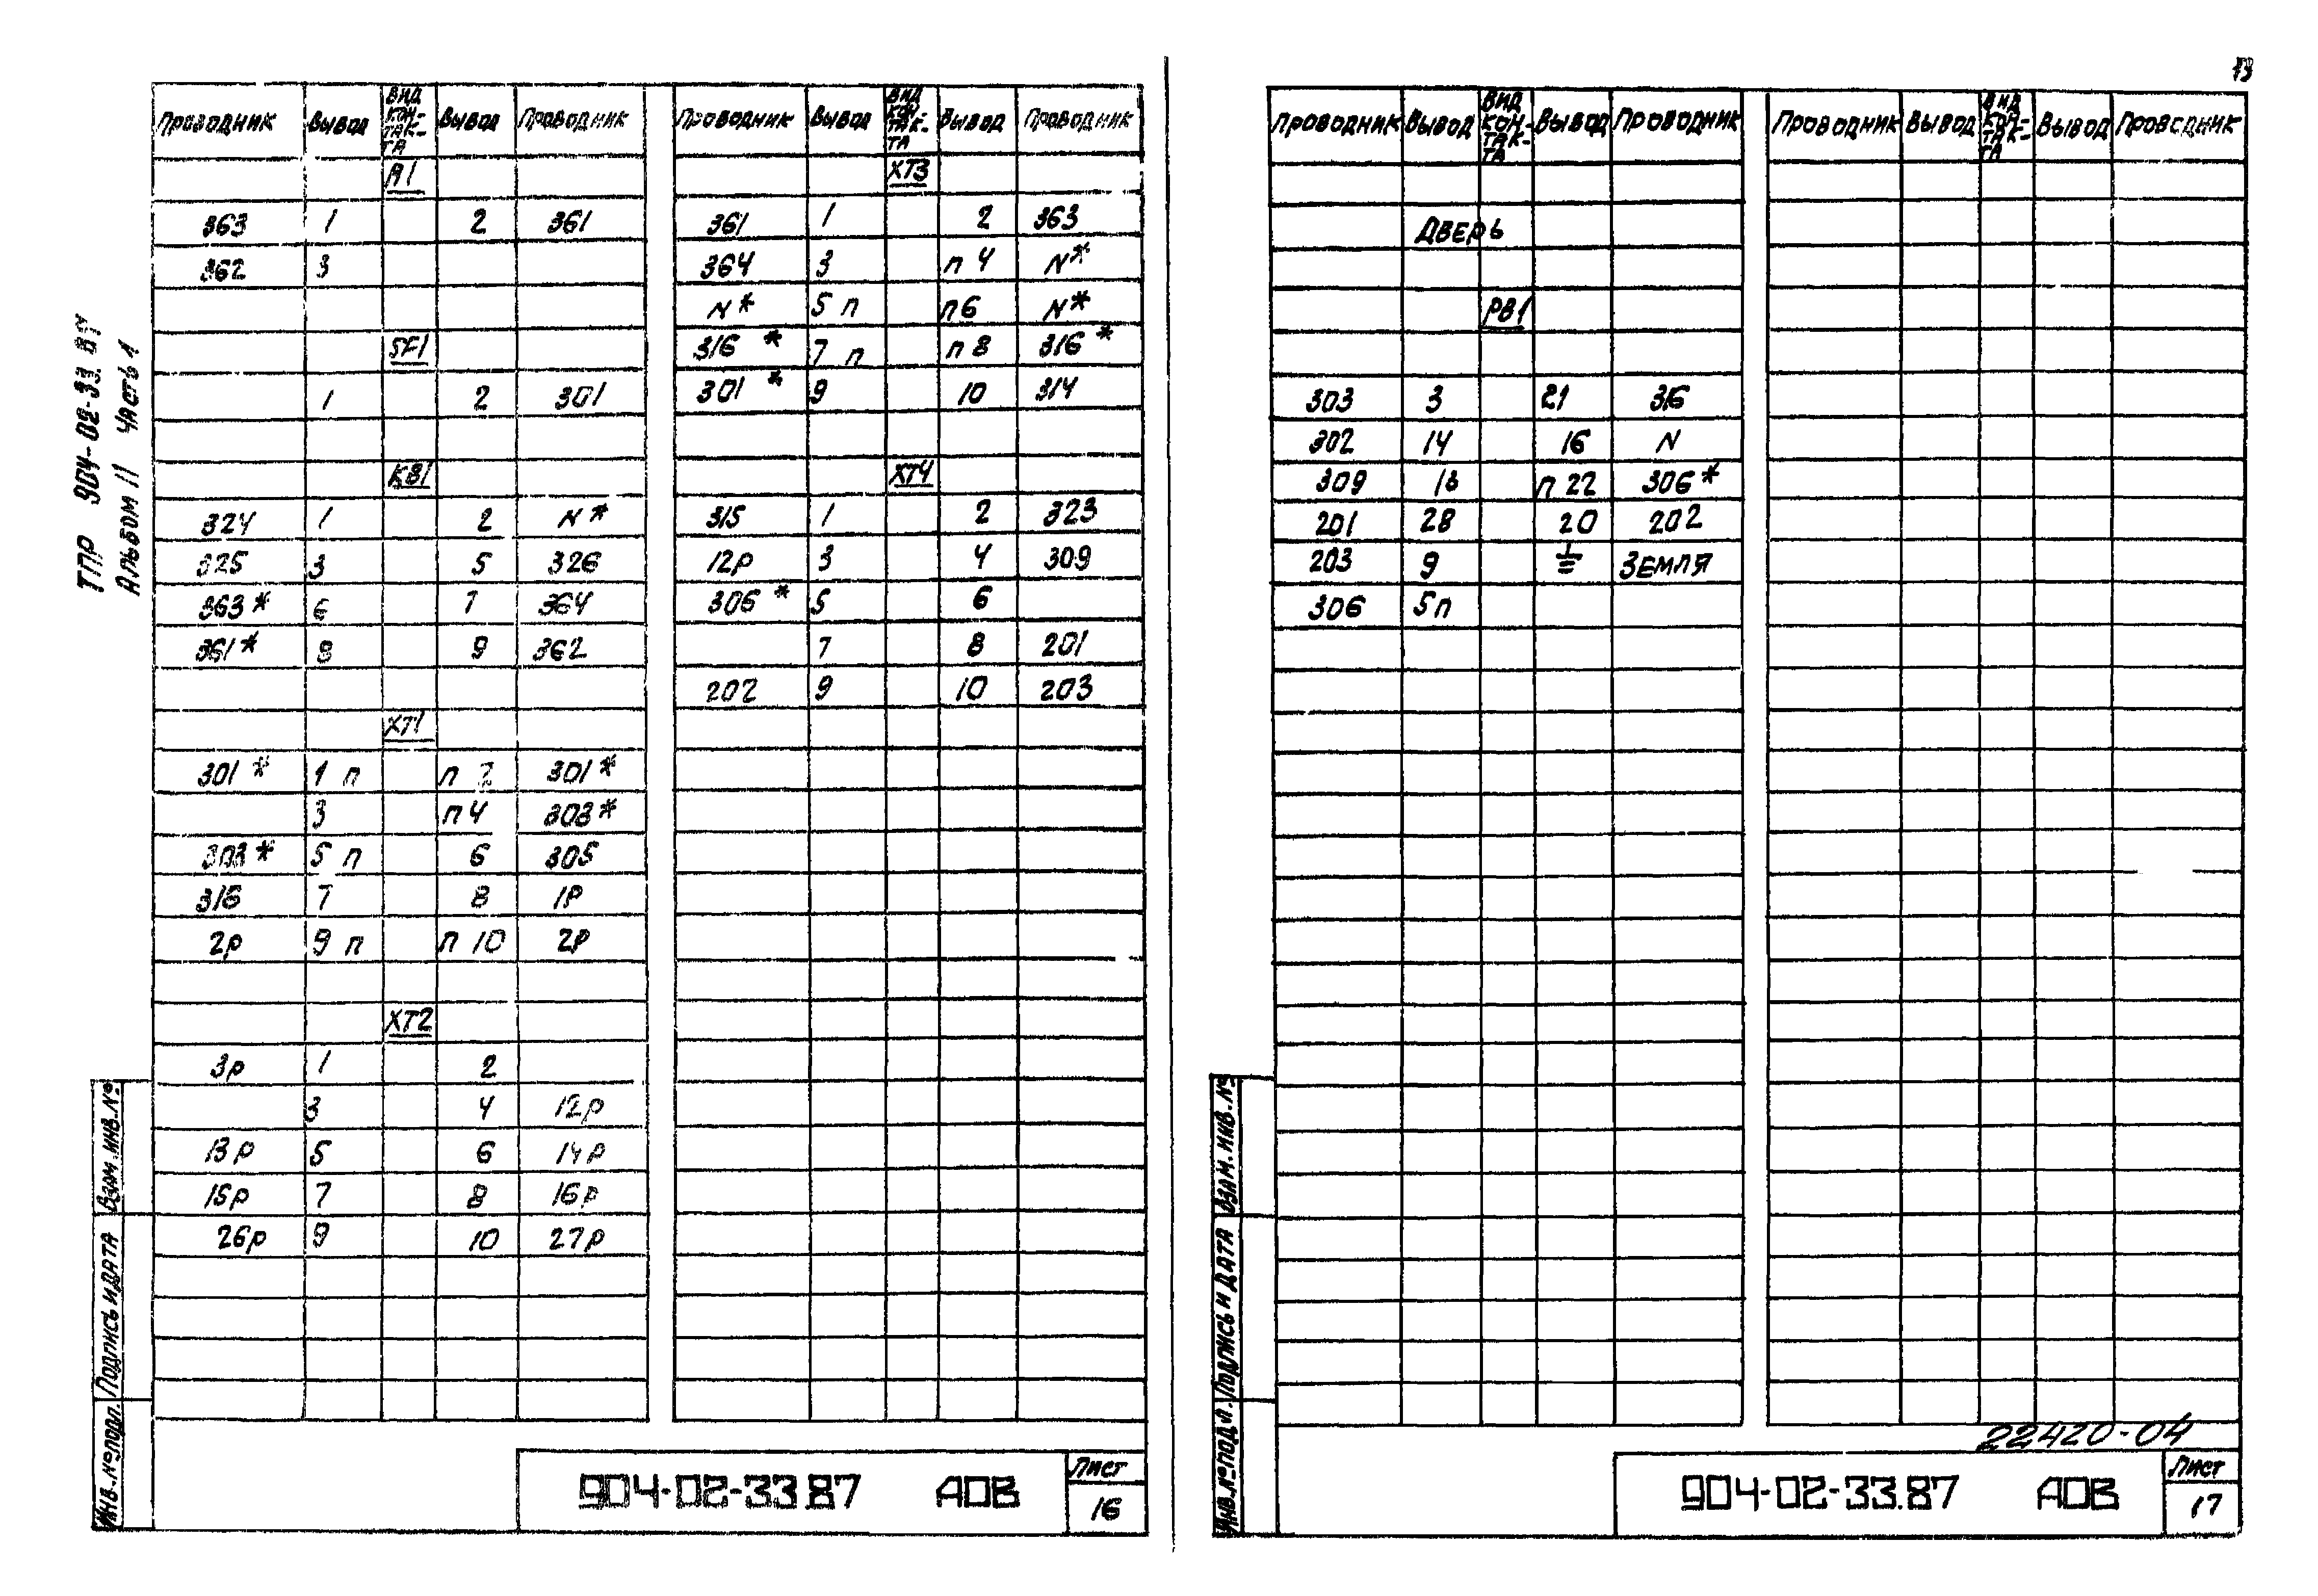 13
ТПР 904-02-33.87
Альбом II Часть 1
Проводник Вывод Вид контакта Вывод Проводник
A1
363 1 2 361
362 3
SF1
1 2 301
KB1
324 1 2 N*
325 3 5 326
363* 6 7 364
361* 8 9 362
XT1
301* 1 п п 2 301*
3 п 4 303*
303* 5 п 6 305
316 7 8 1р
2р 9 п п 10 2р
XT2
3р 1 2
3 4 12р
13р 5 6 14р
15р 7 8 16р
26р 9 10 27р
Проводник Вывод Вид контакта Вывод Проводник
XT3
361 1 2 363
364 3 п 4 N*
N* 5 п п6 N*
316* 7 п п 8 316*
301* 9 10 314
XT4
315 1 2 323
12р 3 4 309
306* 5 6
7 8 201
202 9 10 203
Взам. инв. №
Подпись и дата
Инв. № подл.
904-02-33.87 АОВ
Лист
16
Проводник Вывод Вид контакта Вывод Проводник
Дверь
РВ1
303 3 21 316
302 14 16 N
309 13 п 22 306*
201 28 20 202
203 9 ⏚ Земля
306 5п
Проводник Вывод Вид контакта Вывод Проводник
Взам. инв. №
Подпись и дата
Инв. № подл.
22420-04
904-02-33.87 АОВ
Лист
17